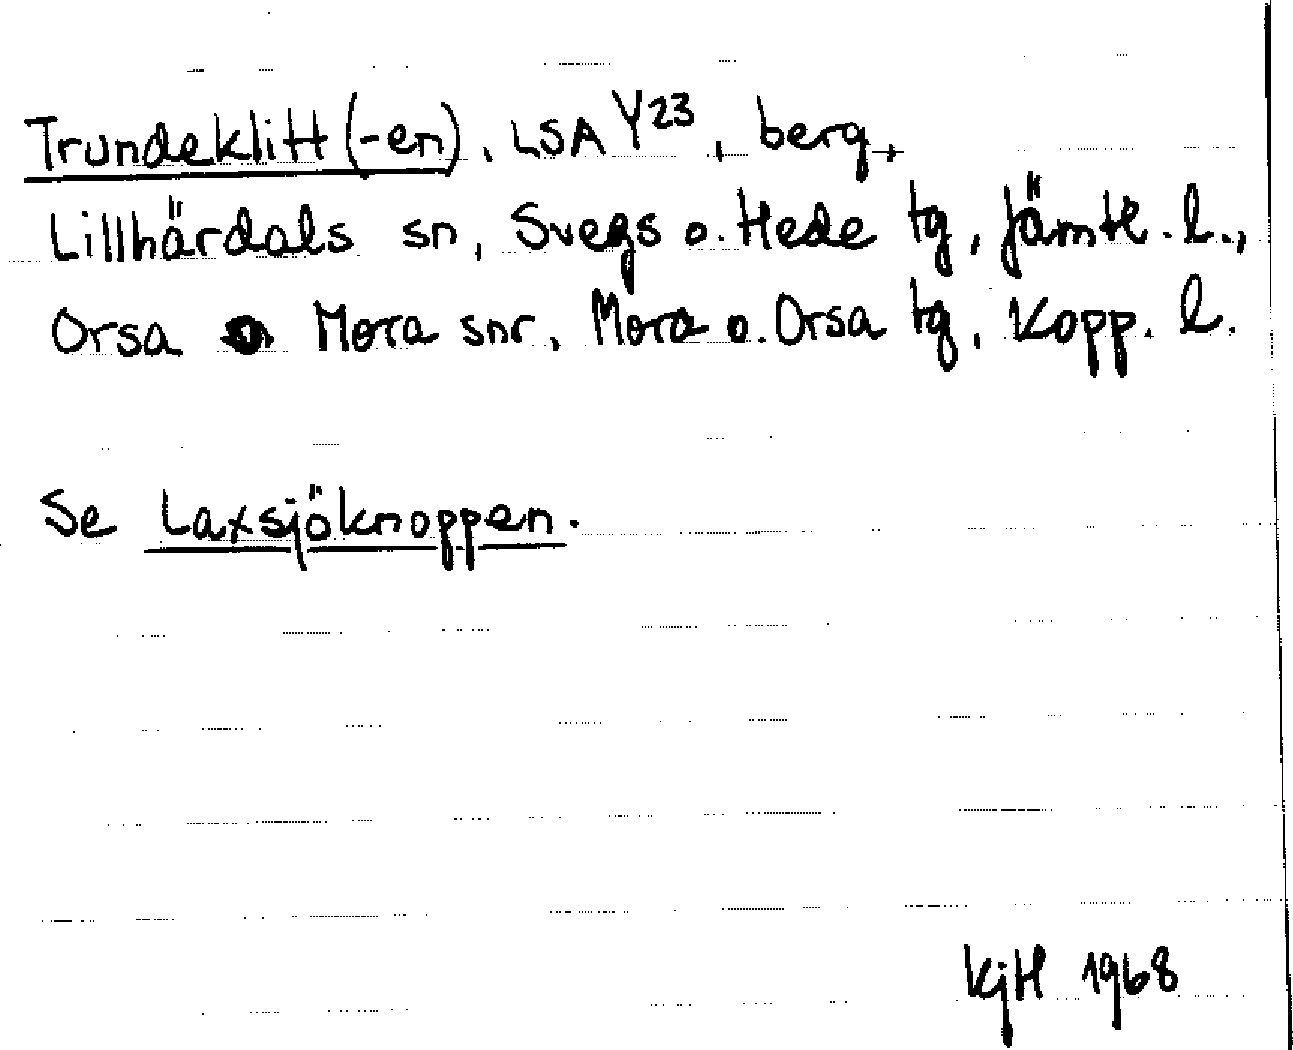 Trundeklitt (-en), LSA Y23, berg,
Lillhärdals sn, Svegs o. Hede tg, Jämtl. l.,
Orsa o Mora snr, Mora o. Orsa tg, Kopp. l.
Se Laxsjöknoppen.
KjH 1968